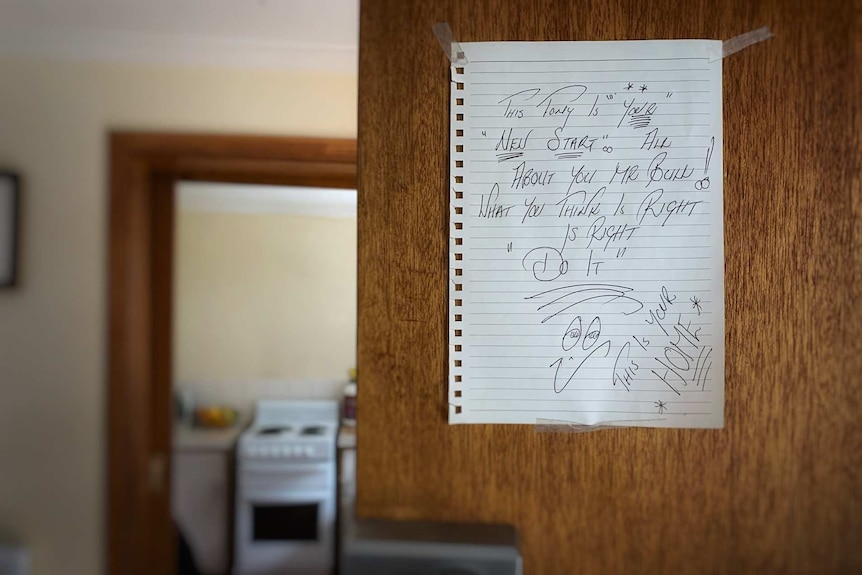 THIS TONY IS "YOUR"
"NEW START" ALL
ABOUT YOU MR BULL!
WHAT YOU THINK IS RIGHT
IS RIGHT
"DO IT"
THIS IS YOUR
HOME